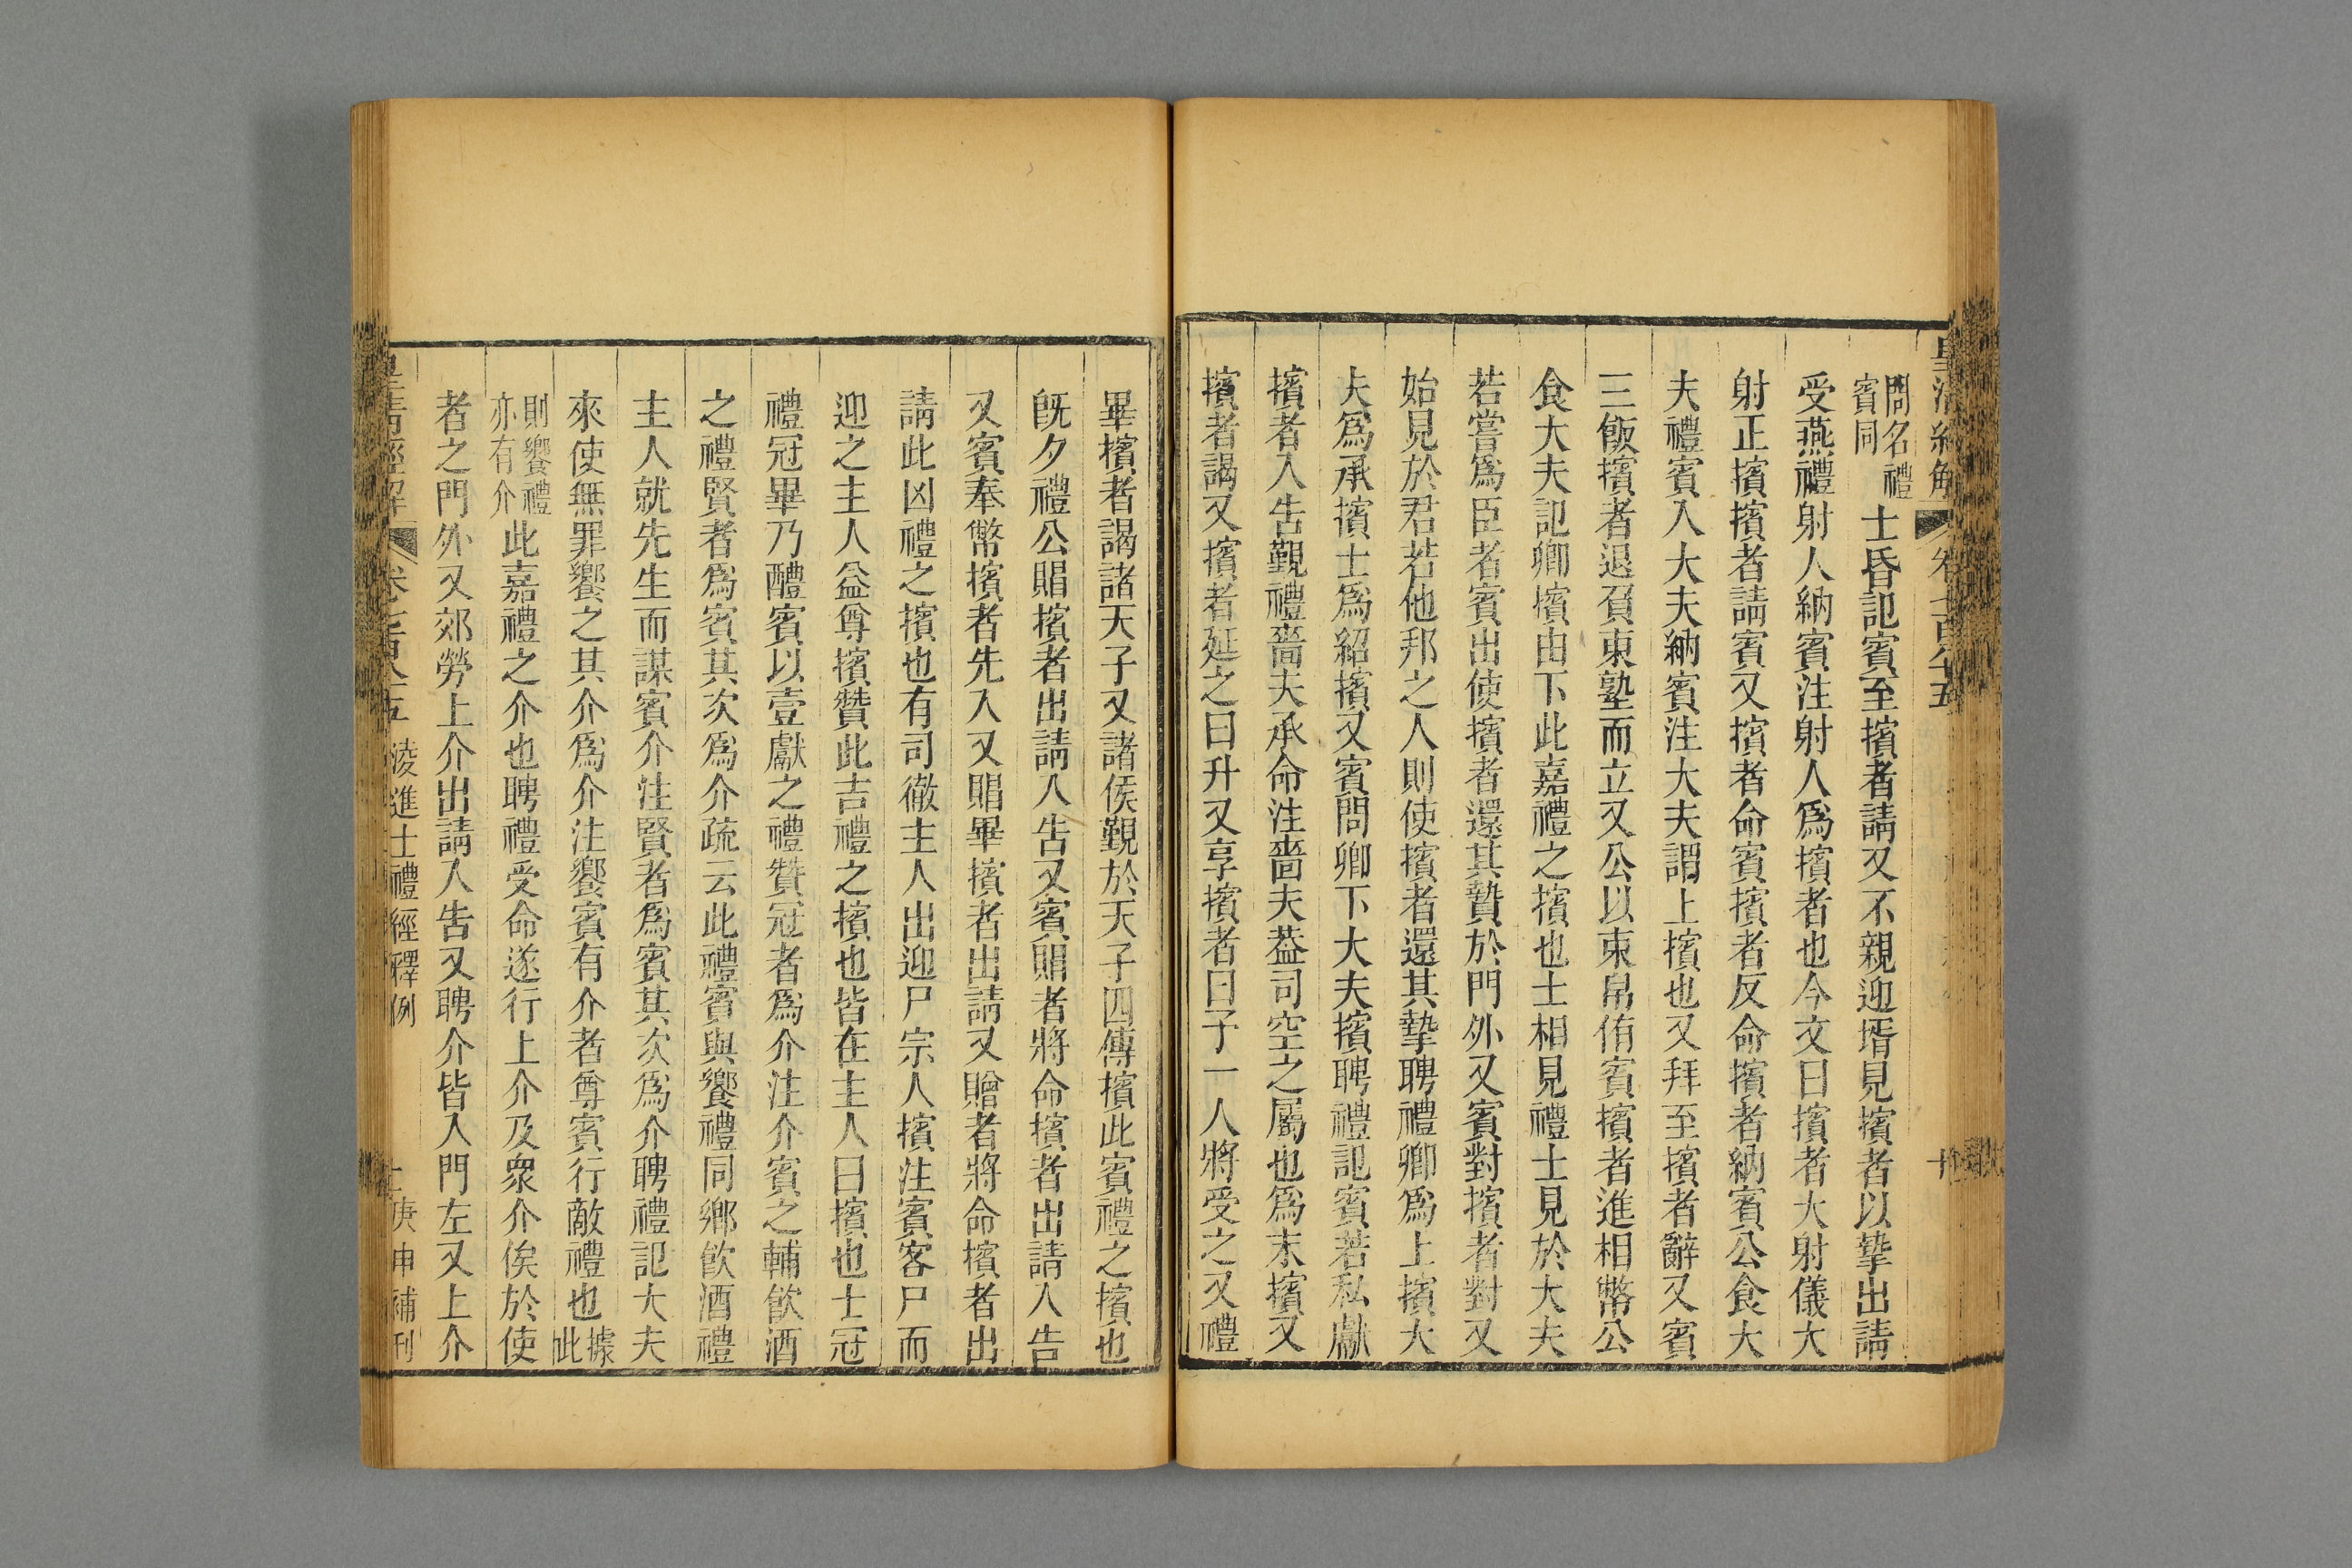 皇清經解 卷七百八十五 十
問名禮
賓同
士昏記賓至擯者請又不親迎壻見擯者以摯出請
受燕禮射人納賓注射人爲擯者也今文曰擯者大射儀大
射正擯擯者請賓又擯者命賓擯者反命擯者納賓公食大
夫禮賓入大夫納賓注大夫謂上擯也又拜至擯者辭又賓
三飯擯者退負東塾而立又公以束帛侑賓擯者進相幣公
食大夫記卿擯由下此嘉禮之擯也士相見禮士見於大夫
若嘗爲臣者賓出使擯者還其贄於門外又賓對擯者對又
始見於君若他邦之人則使擯者還其摯聘禮卿爲上擯大
夫爲承擯士爲紹擯又賓問卿下大夫擯聘禮記賓若私獻
擯者入告覲禮嗇夫承命注嗇夫葢司空之屬也爲末擯又
擯者謁又擯者延之曰升又享擯者曰予一人將受之又禮
畢擯者謁諸天子又諸侯覲於天子四傳擯此賓禮之擯也
旣夕禮公賵擯者出請入告又賓賵者將命擯者出請入告
又賓奉幣擯者先入又賵畢擯者出請又贈者將命擯者出
請此凶禮之擯也有司徹主人出迎尸宗人擯注賓客尸而
迎之主人益尊擯贊此吉禮之擯也皆在主人曰擯也士冠
禮冠畢乃醴賓以壹獻之禮贊冠者爲介注介賓之輔飮酒
之禮賢者爲賓其次爲介疏云此禮賓與饗禮同鄉飮酒禮
主人就先生而謀賓介注賢者爲賓其次爲介聘禮記大夫
來使無罪饗之其介爲介注饗賓有介者尊賓行敵禮也據
此
則饗禮
亦有介
此嘉禮之介也聘禮受命遂行上介及衆介俟於使
者之門外又郊勞上介出請入告又聘介皆入門左又上介
皇清經解 卷七百八十五 淩進士禮經釋例 十 庚申補刊